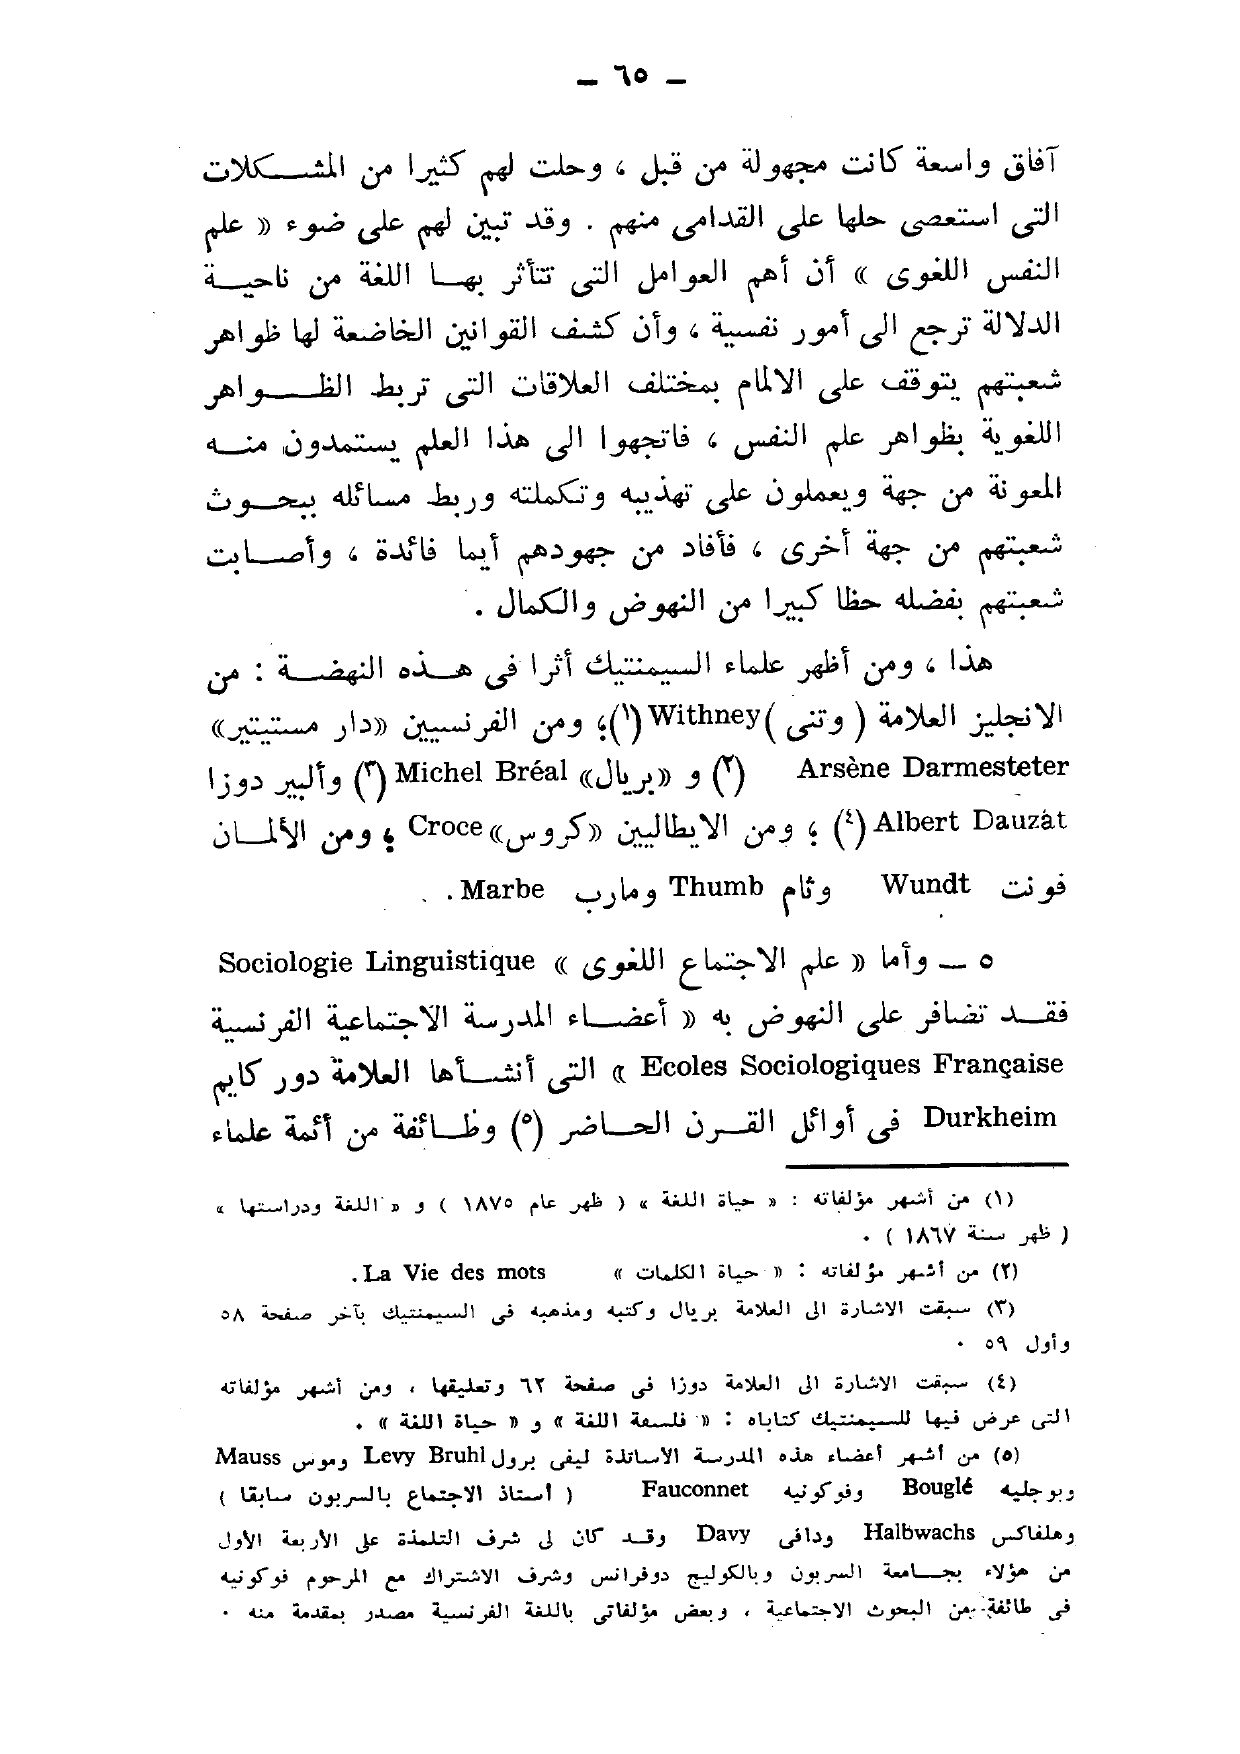 — ٦٥ —
آفاق واسعة كانت مجهولة من قبل ، وحلت لهم كثيرا من المشكلات
التى استعصى حلها على القدامى منهم . وقد تبين لهم على ضوء « علم
النفس اللغوى » أن أهم العوامل التى تتأثر بها اللغة من ناحية
الدلالة ترجع الى أمور نفسية ، وأن كشف القوانين الخاضعة لها ظواهر
شعبتهم يتوقف على الالمام بمختلف العلاقات التى تربط الظواهر
اللغوية بظواهر علم النفس ، فاتجهوا الى هذا العلم يستمدون منه
المعونة من جهة ويعملون على تهذيبه وتكملته وربط مسائله ببحوث
شعبتهم من جهة أخرى ، فأفاد من جهودهم أيما فائدة ، وأصابت
شعبتهم بفضله حظا كبيرا من النهوض والكمال .
هذا ، ومن أظهر علماء السيمنتيك أثرا فى هذه النهضة : من
الانجليز العلامة ( وتنى ) Withney (١)؛ ومن الفرنسيين «دار مستيتير»
Arsène Darmesteter (٢) و «بريال» Michel Bréal (٣) وألبير دوزا
Albert Dauzàt (٤) ؛ ومن الايطاليين «كروس» Croce ؛ ومن الألمان
فونت Wundt وثام Thumb ومارب Marbe .
٥ — وأما « علم الاجتماع اللغوى » Sociologie Linguistique
فقد تضافر على النهوض به « أعضاء المدرسة الاجتماعية الفرنسية
Ecoles Sociologiques Française » التى أنشأها العلامة دور كايم
Durkheim فى أوائل القرن الحاضر (٥) وطائفة من أئمة علماء
(١) من أشهر مؤلفاته : « حياة اللغة » ( ظهر عام ١٨٧٥ ) و « اللغة ودراستها »
( ظهر سنة ١٨٦٧ ) .
(٢) من أشهر مؤلفاته : « حياة الكلمات » La Vie des mots.
(٣) سبقت الاشارة الى العلامة بريال وكتبه ومذهبه فى السيمنتيك بآخر صفحة ٥٨
وأول ٥٩ .
(٤) سبقت الاشارة الى العلامة دوزا فى صفحة ٦٢ وتعليقها ، ومن أشهر مؤلفاته
التى عرض فيها للسيمنتيك كتاباه : « فلسفة اللغة » و « حياة اللغة » .
(٥) من أشهر أعضاء هذه المدرسة الاساتذة ليفى برول Levy Bruhl وموس Mauss
وبوجليه Bouglé وفوكونيه Fauconnet ( أستاذ الاجتماع بالسربون سابقا )
وهلفاكس Halbwachs ودافى Davy وقد كان لى شرف التلمذة على الأربعة الأول
من هؤلاء بجامعة السربون وبالكوليج دوفرانس وشرف الاشتراك مع المرحوم فوكونيه
فى طائفة من البحوث الاجتماعية ، وبعض مؤلفاتى باللغة الفرنسية مصدر بمقدمة منه .